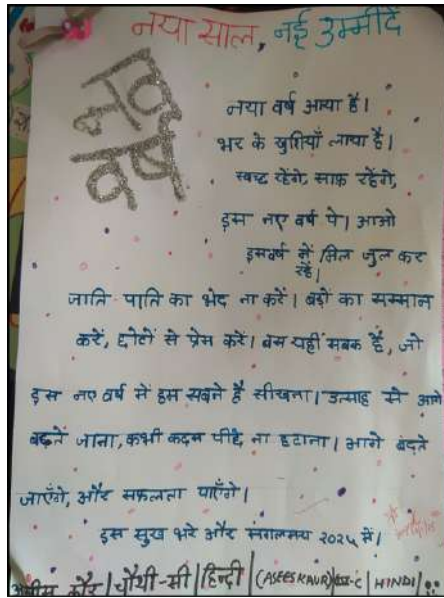 नया साल, नई उम्मीदें
नव
वर्ष
नया वर्ष आया है।
भर के खुशियाँ लाया है।
स्वच्छ रहेंगे, साफ़ रहेंगे,
इस नए वर्ष पे। आओ
इस वर्ष में मिल जुल कर
रहें।
जाति-पाति का भेद ना करें। बड़ों का सम्मान
करें, छोटों से प्रेम करें। बस यहीं सबक है, जो
इस नए वर्ष में हम सबने है सीखना। उत्साह से आगे
बढ़ते जाना, कभी कदम पीछे ना हटाना। आगे बढ़ते
जाएँगे, और सफलता पाएँगे।
इस सुख भरे और मंगलमय २०२५ में।
असीस कौर | चौथी-सी | हिन्दी | (ASEES KAUR) | C | HINDI |